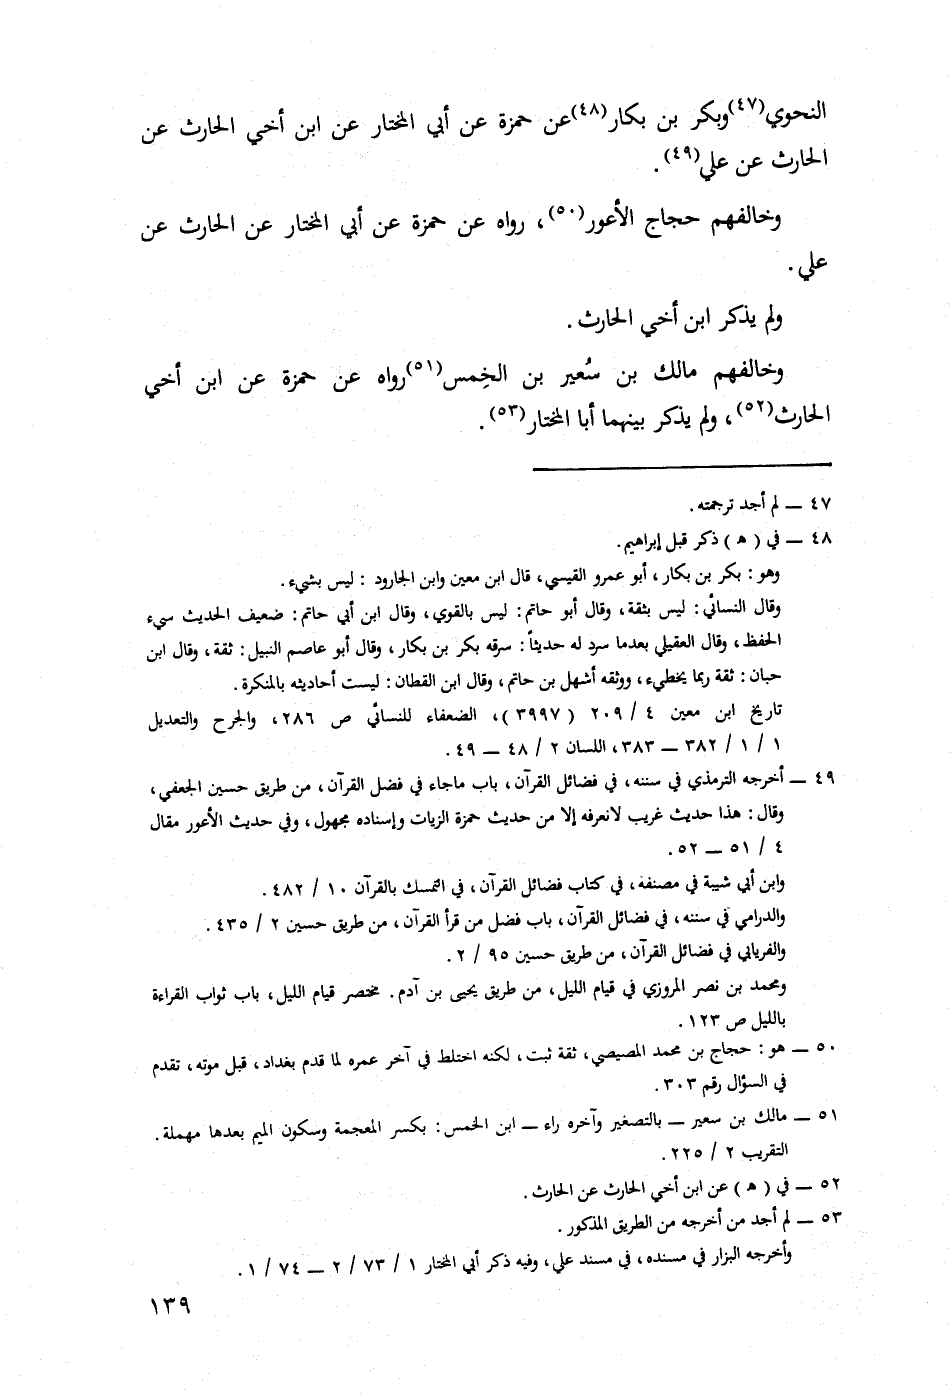 النحوي(٤٧)وبكر بن بكار(٤٨)عن حمزة عن أبي المختار عن ابن أخي الحارث عن
الحارث عن علي(٤٩).
وخالفهم حجاج الأعور(٥٠)، رواه عن حمزة عن أبي المختار عن الحارث عن
علي.
ولم يذكر ابن أخي الحارث.
وخالفهم مالك بن سُعير بن الخِمس(٥١)رواه عن حمزة عن ابن أخي
الحارث(٥٢)، ولم يذكر بينهما أبا المختار(٥٣).
٤٧ — لم أجد ترجمته.
٤٨ — في ( ه ) ذكر قبل إبراهيم.
وهو : بكر بن بكار، أبو عمرو القيسي، قال ابن معين وابن الجارود : ليس بشيء.
وقال النسائي : ليس بثقة، وقال أبو حاتم : ليس بالقوي، وقال ابن أبي حاتم : ضعيف الحديث سيء
الحفظ، وقال العقيلي بعدما سرد له حديثاً : سرقه بكر بن بكار، وقال أبو عاصم النبيل : ثقة، وقال ابن
حبان : ثقة ربما يخطيء، ووثقه أشهل بن حاتم، وقال ابن القطان : ليست أحاديثه بالمنكرة.
تاريخ ابن معين ٤ / ٢٠٩ ( ٣٩٩٧ )، الضعفاء للنسائي ص ٢٨٦، والجرح والتعديل
١ / ١ / ٣٨٢ — ٣٨٣، اللسان ٢ / ٤٨ — ٤٩.
٤٩ — أخرجه الترمذي في سننه، في فضائل القرآن، باب ماجاء في فضل القرآن، من طريق حسين الجعفي،
وقال : هذا حديث غريب لانعرفه إلا من حديث حمزة الزيات وإسناده مجهول، وفي حديث الأعور مقال
٤ / ٥١ — ٥٢.
وابن أبي شيبة في مصنفه، في كتاب فضائل القرآن، في التمسك بالقرآن ١٠ / ٤٨٢.
والدرامي في سننه، في فضائل القرآن، باب فضل من قرأ القرآن، من طريق حسين ٢ / ٤٣٥.
والفريابي في فضائل القرآن، من طريق حسين ٩٥ / ٢.
ومحمد بن نصر المروزي في قيام الليل، من طريق يحيى بن آدم. مختصر قيام الليل، باب ثواب القراءة
بالليل ص ١٢٣.
٥٠ — هو : حجاج بن محمد المصيصي، ثقة ثبت، لكنه اختلط في آخر عمره لما قدم بغداد، قبل موته، تقدم
في السؤال رقم ٣٠٣.
٥١ — مالك بن سعير — بالتصغير وآخره راء — ابن الخمس : بكسر المعجمة وسكون الميم بعدها مهملة.
التقريب ٢ / ٢٢٥.
٥٢ — في ( ه ) عن ابن أخي الحارث عن الحارث.
٥٣ — لم أجد من أخرجه من الطريق المذكور.
وأخرجه البزار في مسنده، في مسند علي، وفيه ذكر أبي المختار ١ / ٧٣ / ٢ — ٧٤ / ١.
١٣٩